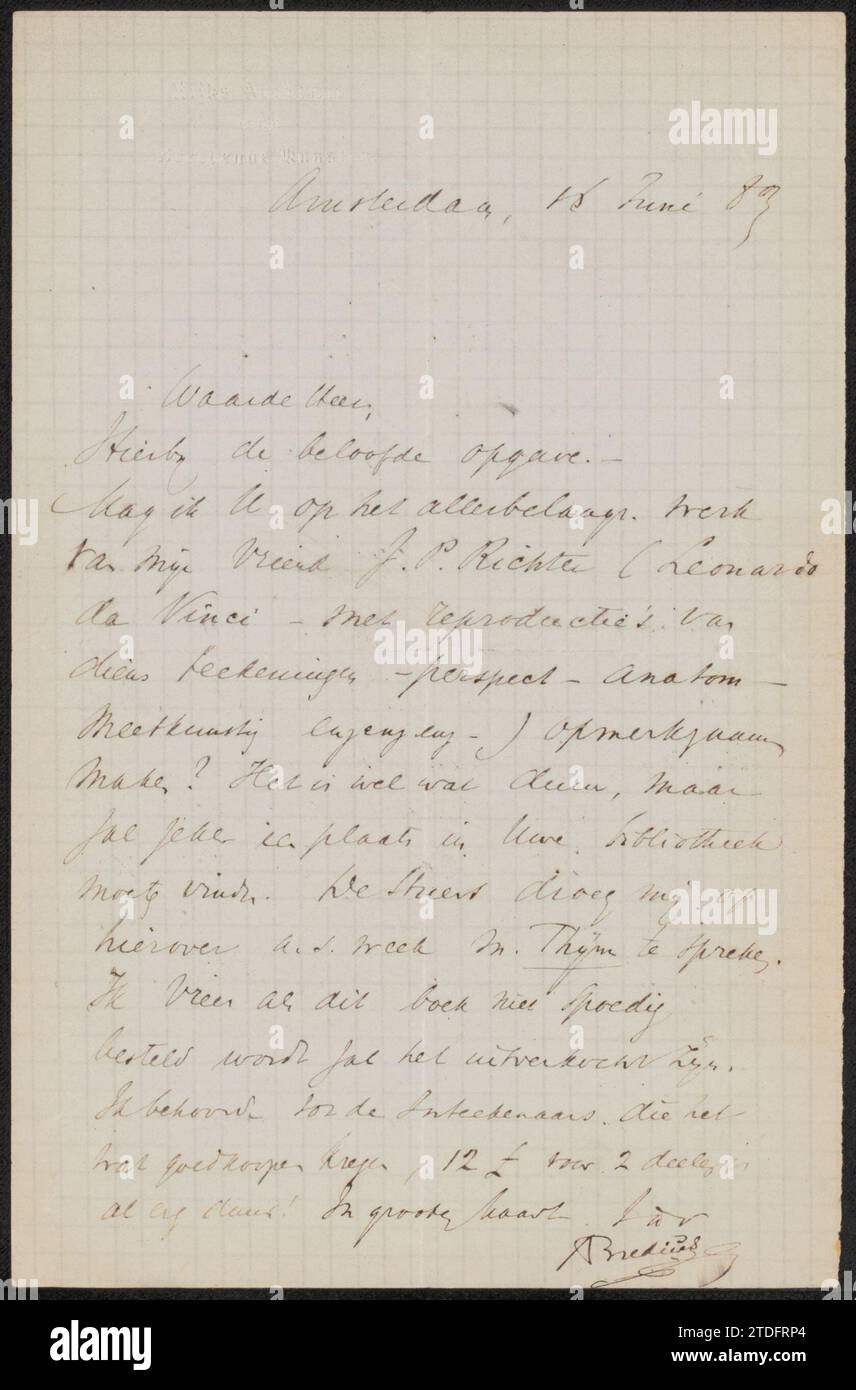 Rijks Academie
van
Beeldende Kunsten
Amsterdam, Juni 83
Waarde Heer,
Hierby de beloofde opgave. —
Mag ik U op het allerbelangr. werk
van mijn vriend J. P. Richter (Leonardo
da Vinci – met reproductie's van
diens teekeningen – perspect – anatom –
meetkunstig enz enz enz –) opmerkzaam
maken? Het is wel wat duur, maar
zal zeker een plaats in Uwe bibliotheek
moeten vinden. De Stuers droeg mij op
hierover a.s. week m. Thijm te spreken.
Ik vrees als dit boek niet spoedig
besteld wordt zal het uitverkocht zijn.
Ik behoorde tot de Inteekenaars. die het
wat goedkooper kregen, 12 £ voor 2 deelen is
al erg duur! In groote haast
ABredius
alamy
Image ID: 2TDFRP4
www.alamy.com